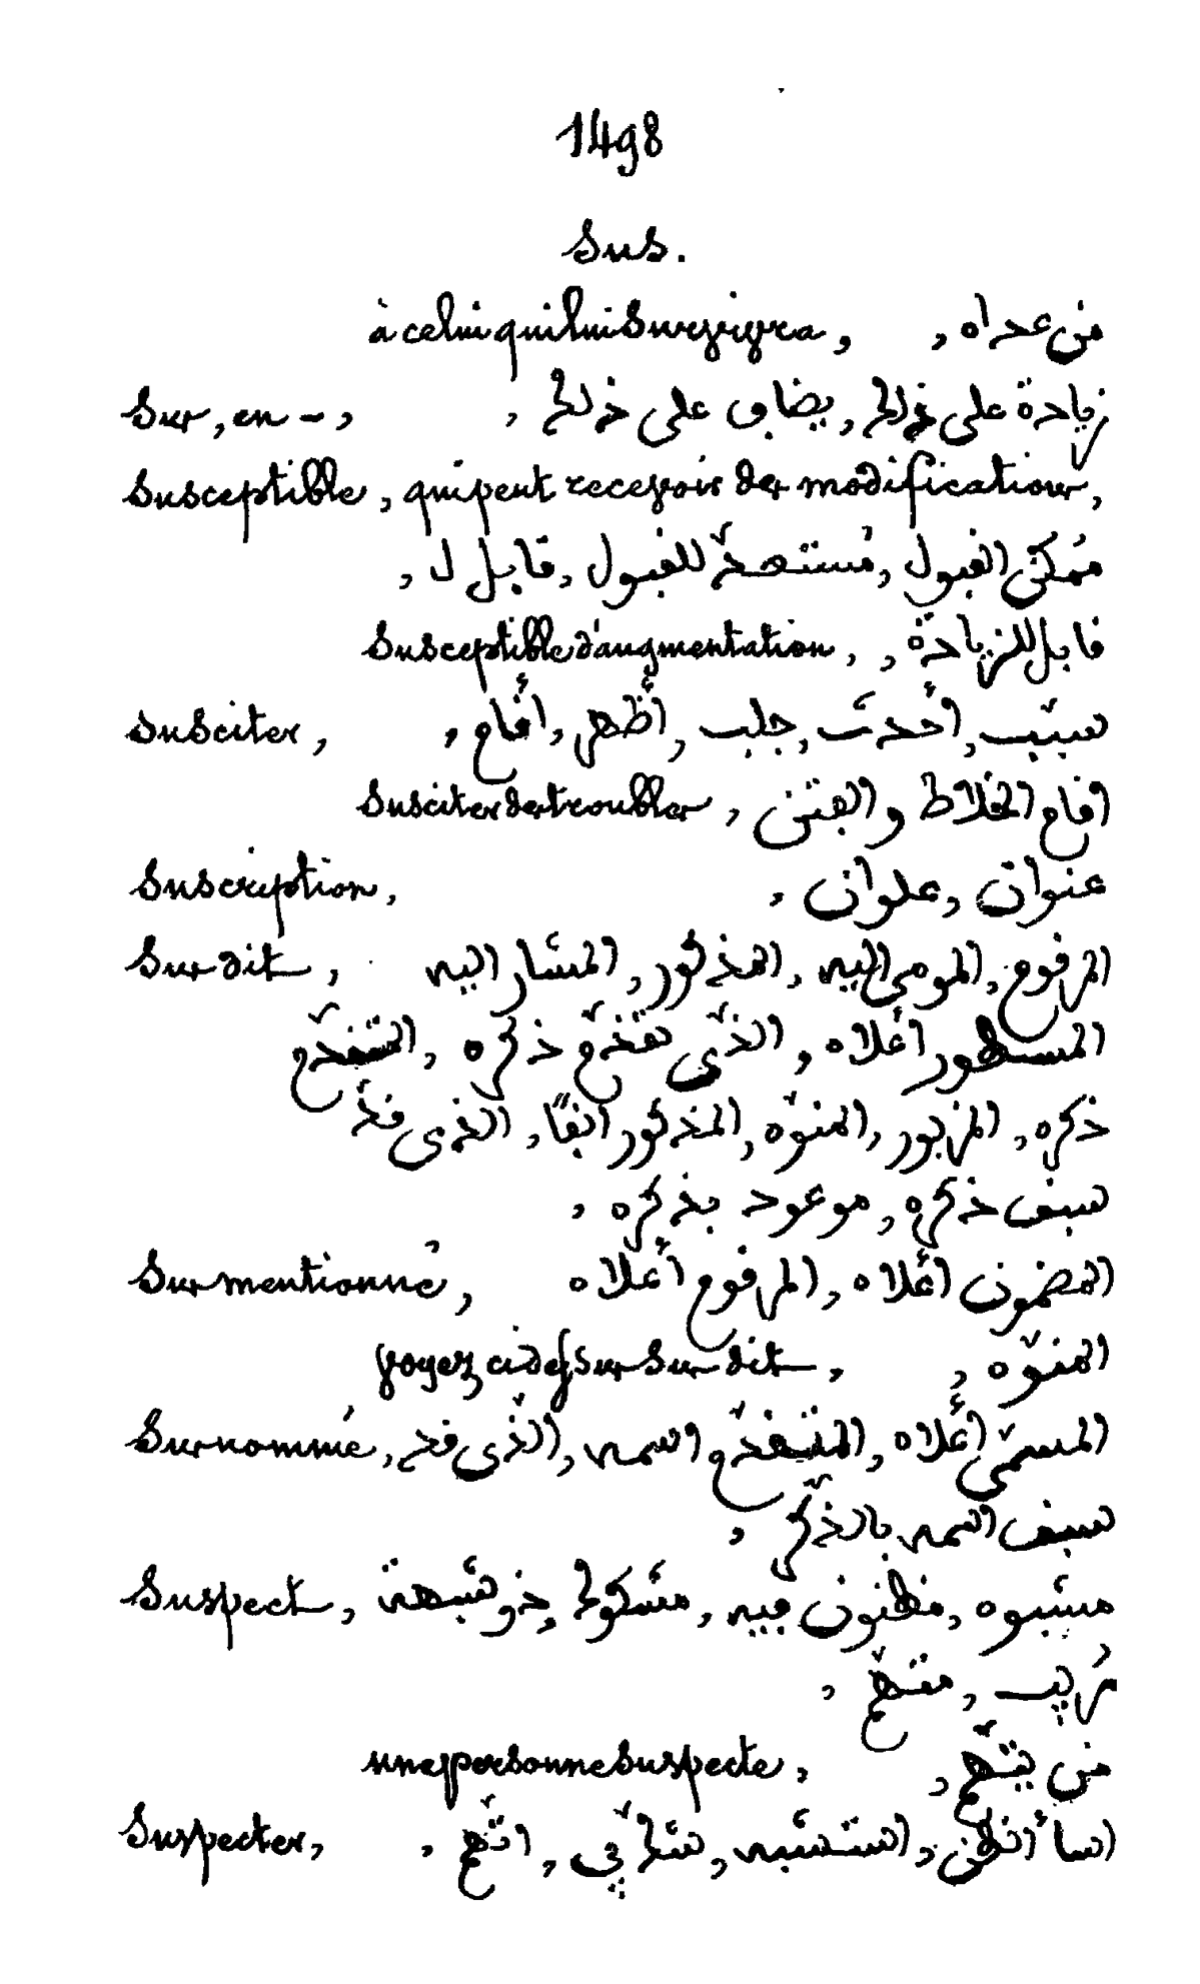 1498
Sus.
à celui qui lui survivra, من عداه,
Sus, en –, زيادة على ذلك, يضاف على ذلك,
Susceptible, qui peut recevoir des modifications,
مُمكن القبول, مُستعدّ للقبول, قابل ل,
Susceptible d'augmentation, قابل للزيادة,
Susciter, سبّب, أحدث, جلب, أظهر, أقام,
Susciter des troubles, اقام الخلاط والفتن
Suscription, عنوان, علوان,
Susdit, المرقوم, المومى اليه, المذكور, المشار اليه
المسطور أعلاه, الذّي تقدّم ذكره, المتقدّم
ذكره, المزبور, المنوّه, المذكور انفًا, الذى قد
سبق ذكره, موعود بذكره,
Susmentionné, المضمون أعلاه, المرقوم أعلاه
voyez ci dessus Susdit, المنوّه,
Susnommé, المسمّى أعلاه, المتقدّم اسمه, الذّى قد
سبق اسمه بالذّكر,
Suspect, مشبوه, مظنون فيه, مشكوك, ذو شبهة
مُريب, متهّم,
une personne suspecte, من يتّهم,
Suspecter, اسا أظن, استشبه, شكّ في, اتّهم,